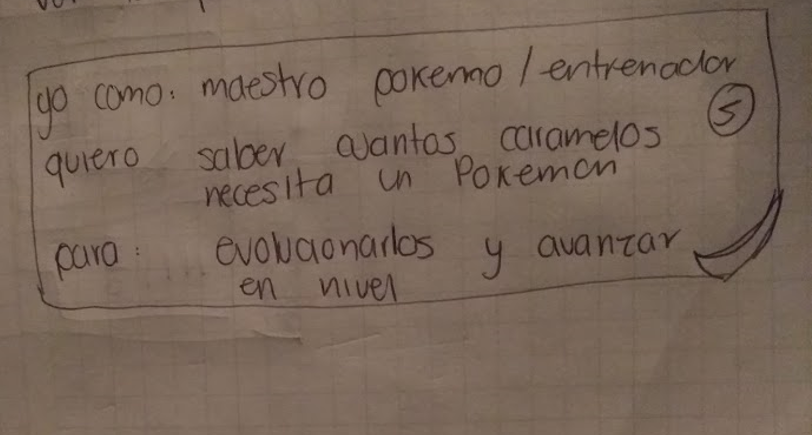 yo como: maestro pokemo / entrenador
quiero saber cuantos caramelos
necesita un Pokemon
para: evolucionarlos y avanzar
en nivel
5